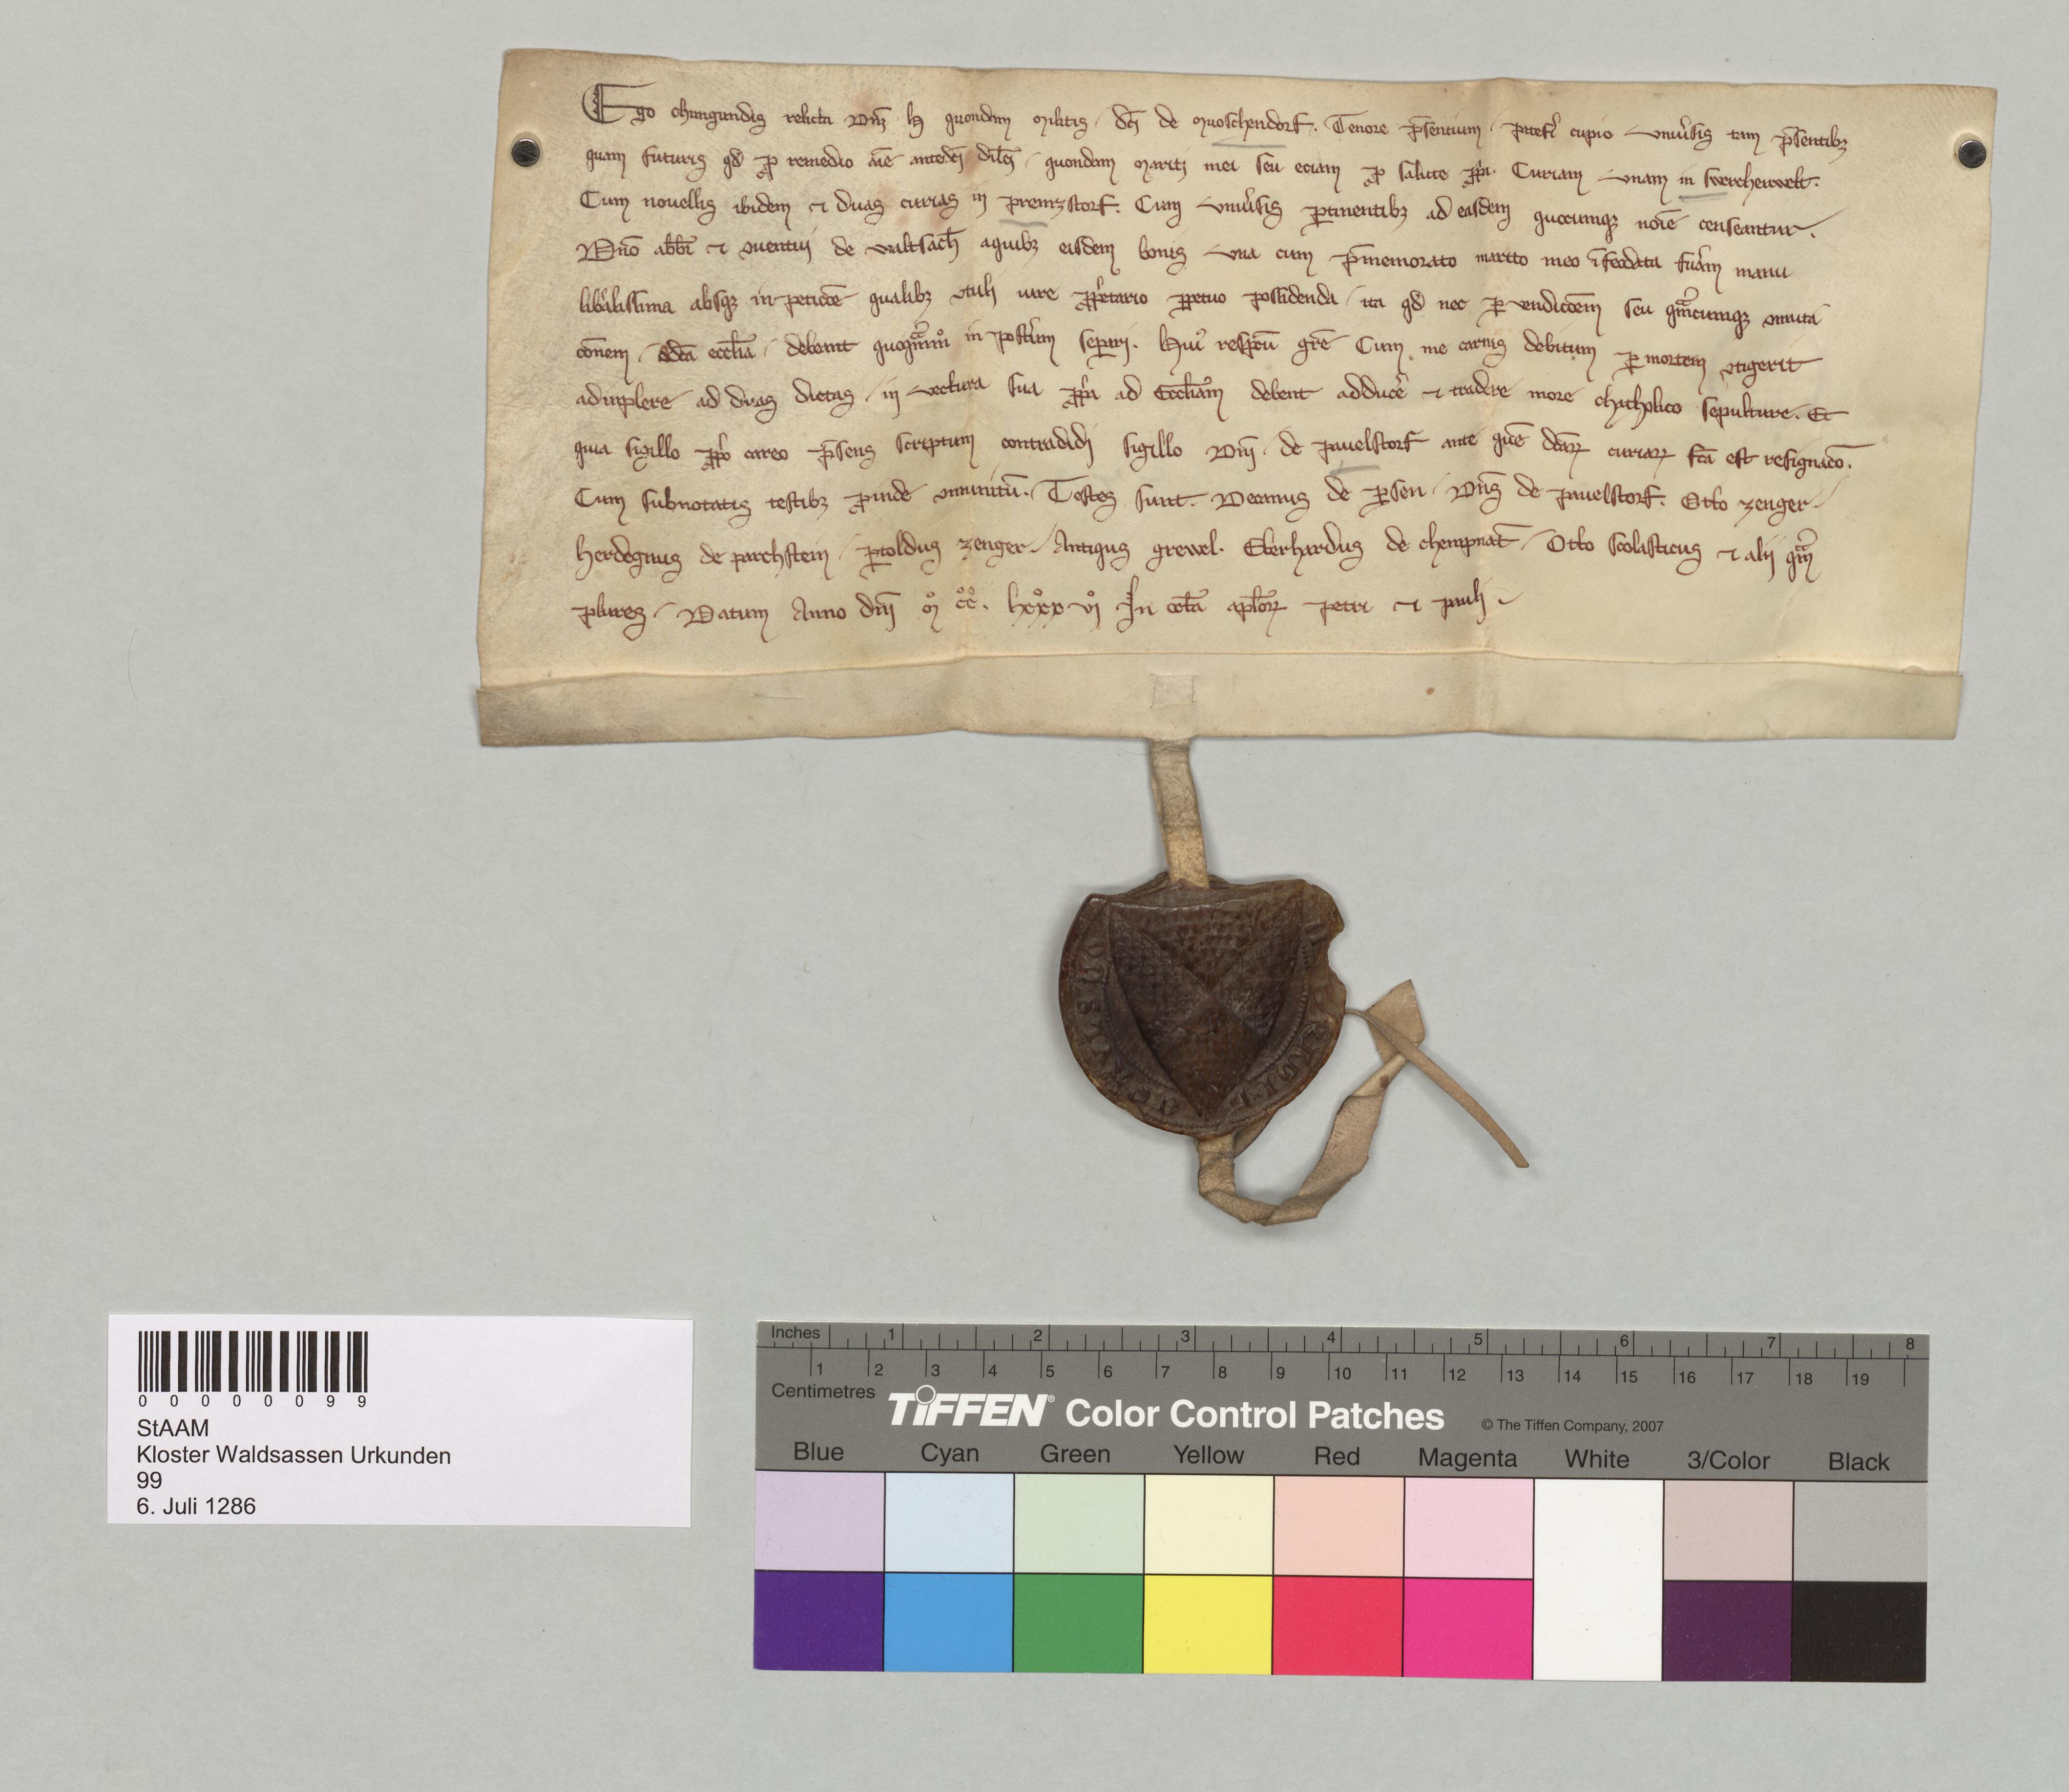 Ego chungundis relicta Dn̄i H quondam Militis dc̄i de Muoschendorf. Tenore p̄sentium patef̓i cupio vniu̓sis tam p̄sentibꝫ
quam futuris qd̄ ꝓ remedio aīe antedc̄i quondam Mariti mei seu eciam ꝓ salute ꝓp̓a. Curiam vnam in swerchenvelt.
Cum nouellis ibidem ⁊ duas curias in premzstorf. Cum vniu̓sis ꝑtinentibꝫ ad easdem quocumqꝫ noīe censeantur.
Dn̄o abb̄i ⁊ ꝯuentui de waltsach̄ a quibꝫ eisdem bonis vna cum p̄memorato marito meo īfeodata fu̓am manu
lib̓alissima absqꝫ inpeticōe qualibꝫ ꝯtuli iure ꝓp̓etario ꝑpetuo possidenda ita qd̄ nec ꝑ vendicōem seu qm̄cumqꝫ ꝯmuta
cōnem dc̄a eccl̄ia debeant in post̓um separi. Hui᷒ respc̄u gr̄e Cum me carnis debitum ꝑ mortem ꝯtigerit
adinplere ad duas dietas in vectura sua ꝓp̓a ad Eccl̄iam debent adduc̓e ⁊ tradere more chatholico sepulture. Et
quia sigillo ꝓp̓o careo p̄sens scriptum contradidi sigillo Dn̄i de pauelstorf ante quē dc̄aꝝ curiaꝝ fc̄a est resignacō.
Cum subnotatis testibꝫ ꝓinde ꝯmunitū. Testes sunt. Decanus de ꝑsen Dn̄s de pauelstorf. Otto zenger
Herdegnus de parchstein ꝑtoldus zenger Antiqus grewel. Eberhardus de chempnat̄ Otto scolasticus ⁊ alij qm̄
plures Datum Anno dn̄i M̊ cc̊. lxxx̊ vj̊ In oct̄a apl̄oꝝ petri ⁊ pauli
00000099
StAAM
Kloster Waldsassen Urkunden
99
6. Juli 1286
Inches 1 2 3 4 5 6 7 8
1 2 3 4 5 6 7 8 9 10 11 12 13 14 15 16 17 18 19
Centimetres
TIFFEN® Color Control Patches © The Tiffen Company, 2007
Blue Cyan Green Yellow Red Magenta White 3/Color Black